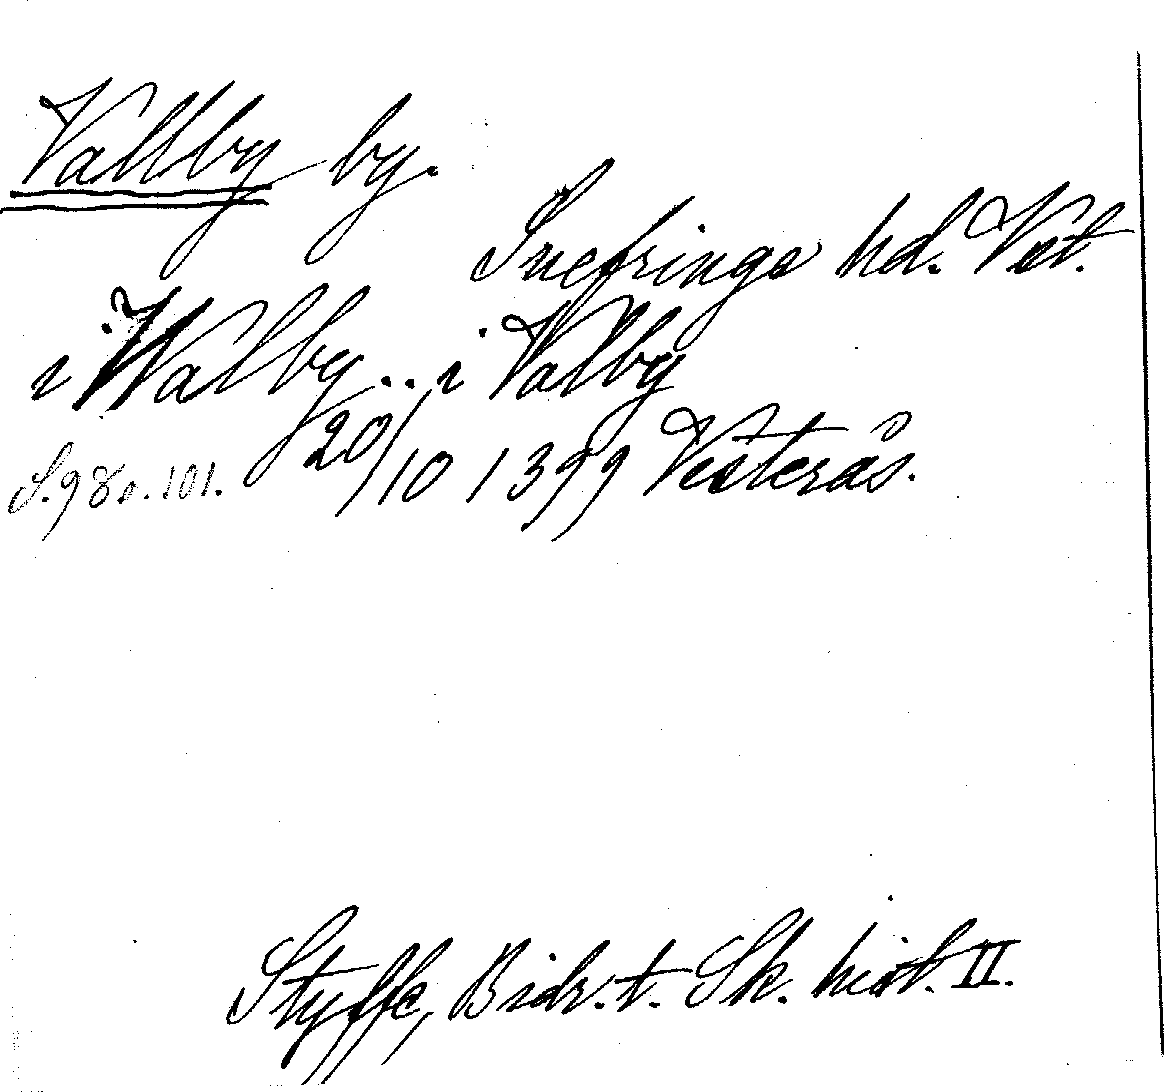 Vallby by.
Snefringe hd. Vst.
i Walby .. i Valby
S. 98 o. 101. 20/10 1399 Västerås.
Styffe, Bidr. t. Sk. hist. II.